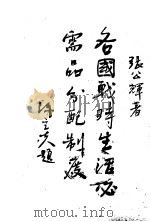 張公輝著
各國戰時生活必
需品分配制度